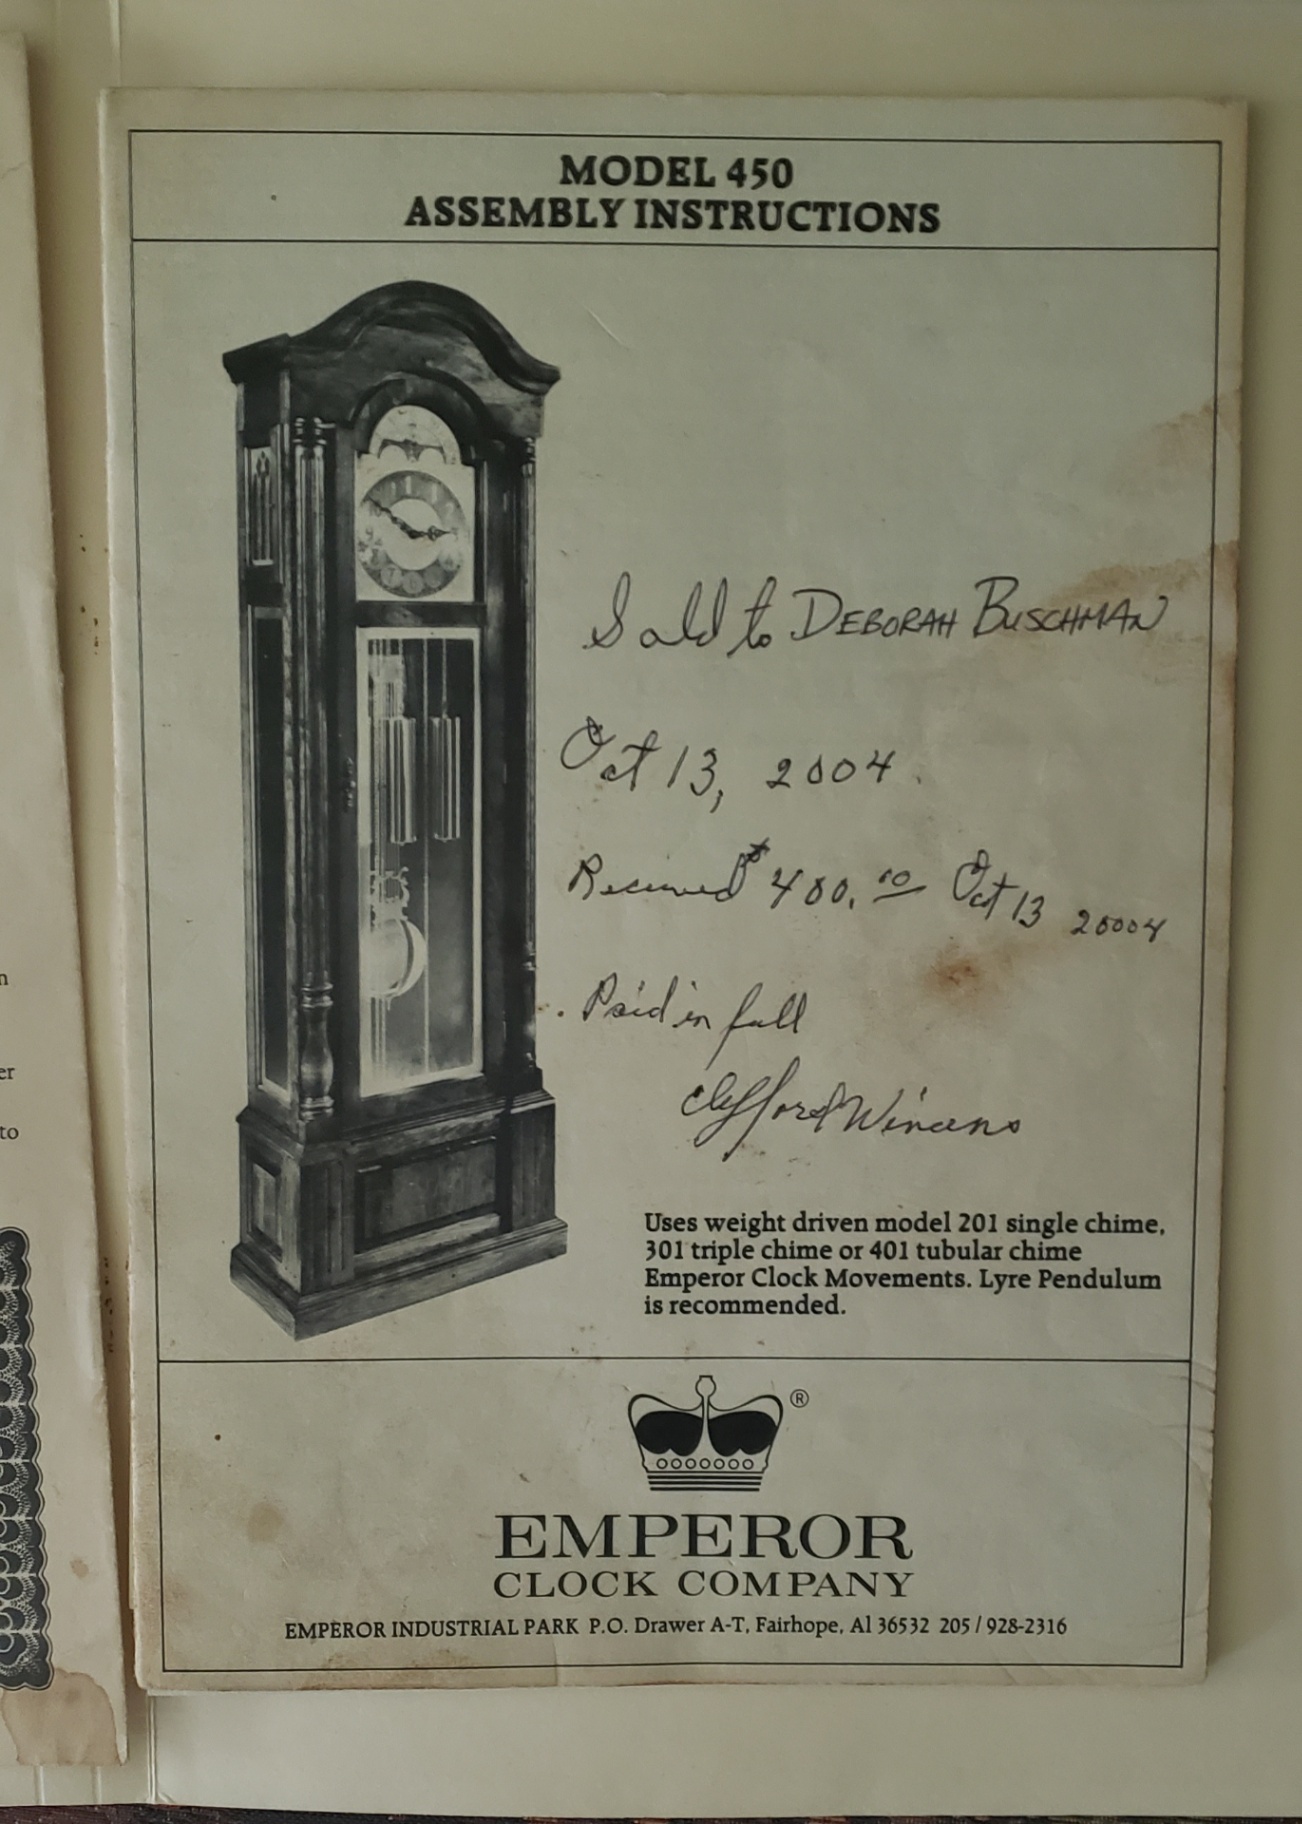 MODEL 450
ASSEMBLY INSTRUCTIONS
Sold to DEBORAH BUSCHMAN
Oct 13, 2004
Received $400.00 Oct 13 20004
Paid in full
Clifford Winans
Uses weight driven model 201 single chime,
301 triple chime or 401 tubular chime
Emperor Clock Movements. Lyre Pendulum
is recommended.
®
EMPEROR
CLOCK COMPANY
EMPEROR INDUSTRIAL PARK P.O. Drawer A-T, Fairhope, Al 36532 205 / 928-2316
to